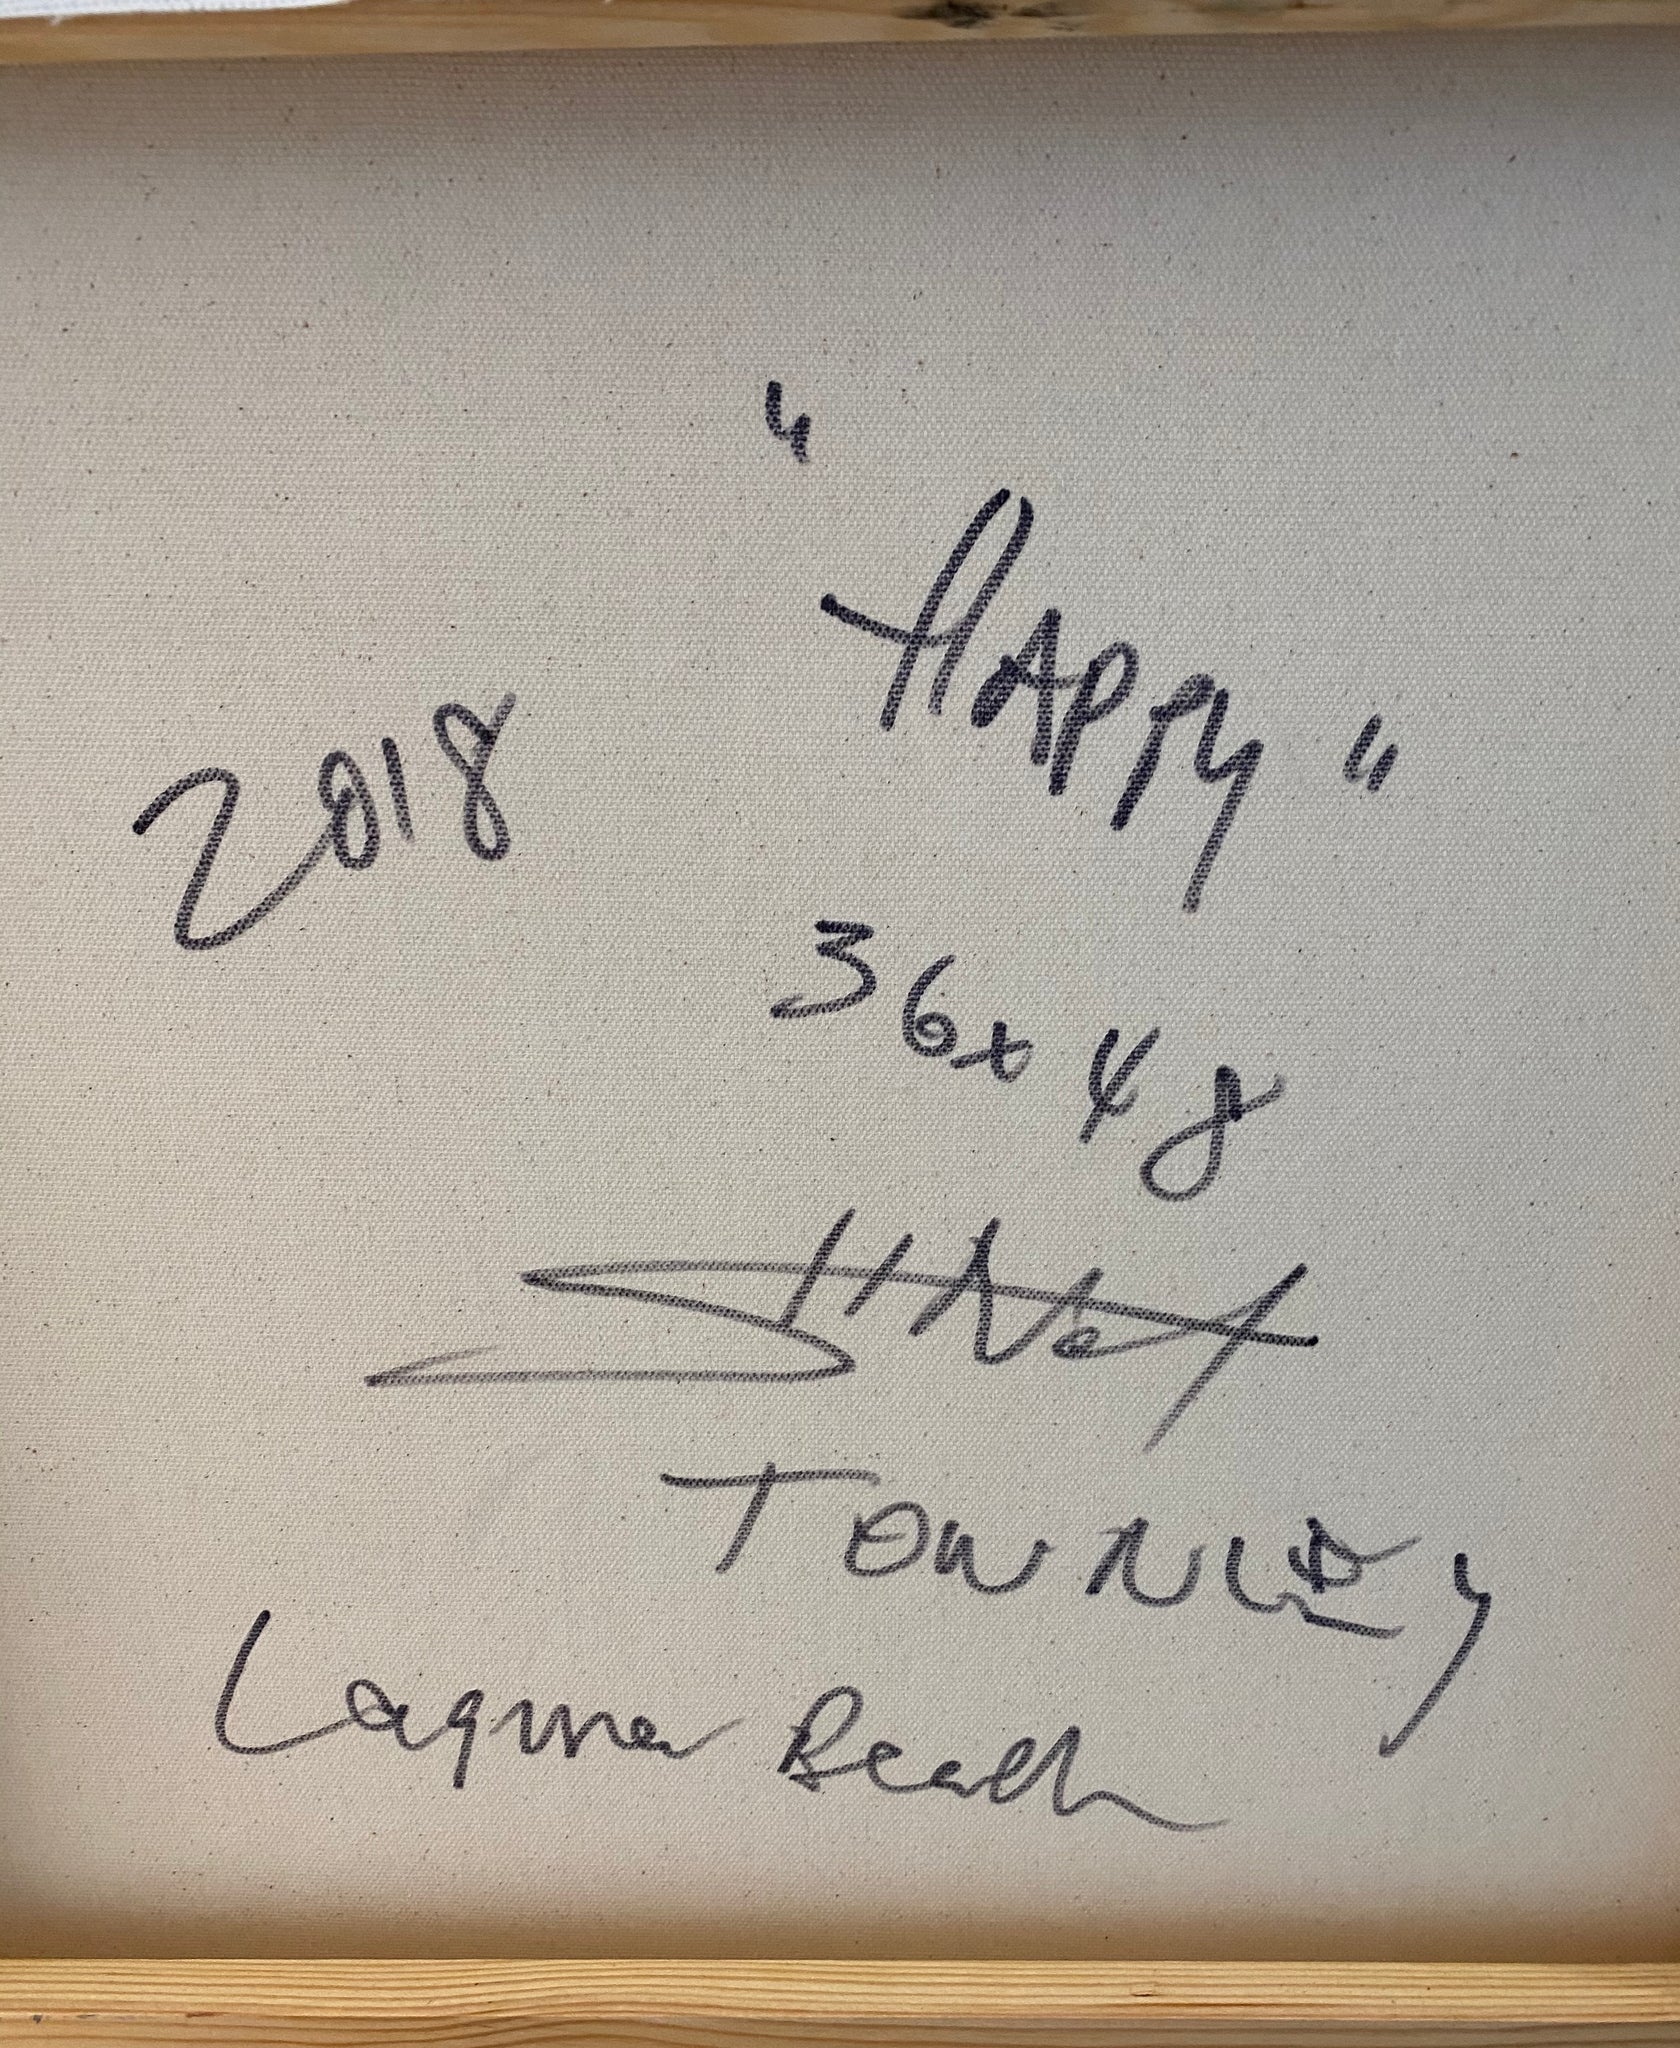 "HAPPY"
2018
36x48
SHANE
TOWNLEY
Laguna Beach